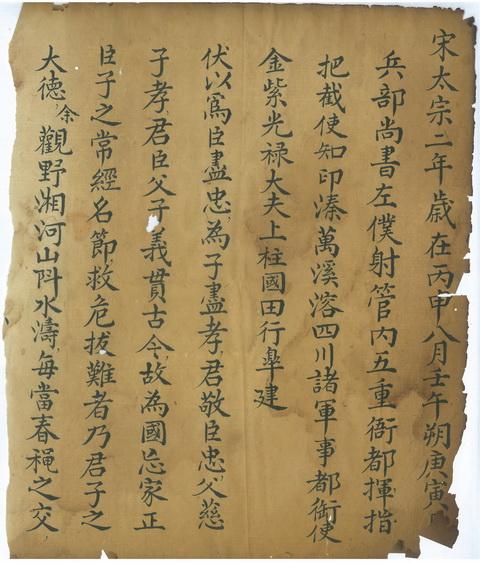 宋太宗二年歲在丙申八月壬午朔庚寅
兵部尚書左僕射管内五重衙都揮指
把截使知印溱萬溪溶四川諸軍事都衙使
金紫光禄大夫上柱國田行皐建
伏以爲臣盡忠,為子盡孝,君敬臣忠,父慈
子孝君臣父子義貫古今,故為國忘家正
臣子之常經名節,救危拔難者乃君子之
大德余觀野湘河山阧水濤,每當春䄇之交,